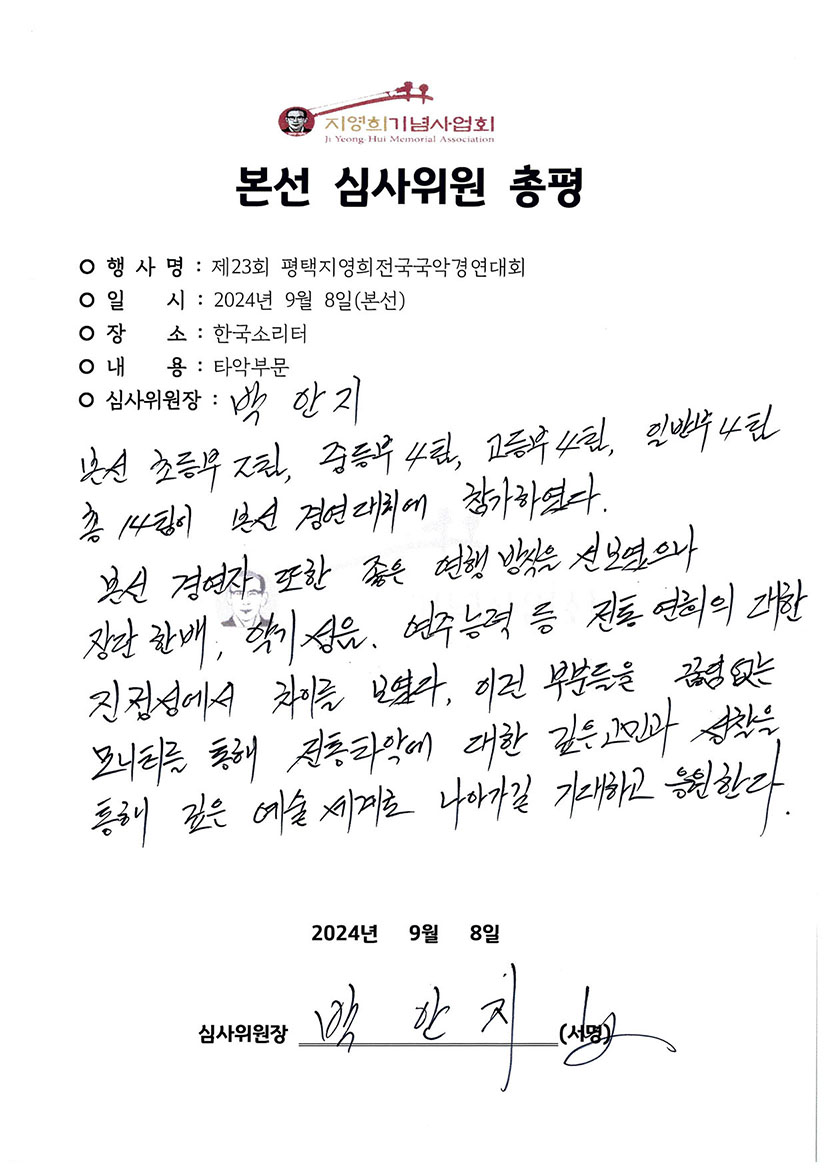 지영희기념사업회
Ji Yeong-Hui Memorial Association
본선 심사위원 총평
행 사 명 : 제23회 평택지영희전국국악경연대회
일 시 : 2024년 9월 8일(본선)
장 소 : 한국소리터
내 용 : 타악부문
심사위원장 : 백 안 지
본선 초등부 2팀, 중등부 4팀, 고등부 4팀, 일반부 4팀
총 14팀이 본선 경연대회에 참가하였다.
본선 경연자 또한 좋은 연행 방식을 선보였으나
장단 한배, 악기 성음. 연주능력 등 전통 연희의 대한
진정성에서 차이를 보였다. 이런 부분들을 끊임없는
모니터를 통해 전통타악에 대한 깊은 고민과 성찰을
통해 깊은 예술 세계로 나아가길 기대하고 응원한다.
2024년 9월 8일
심사위원장 백 안 지 (서명)